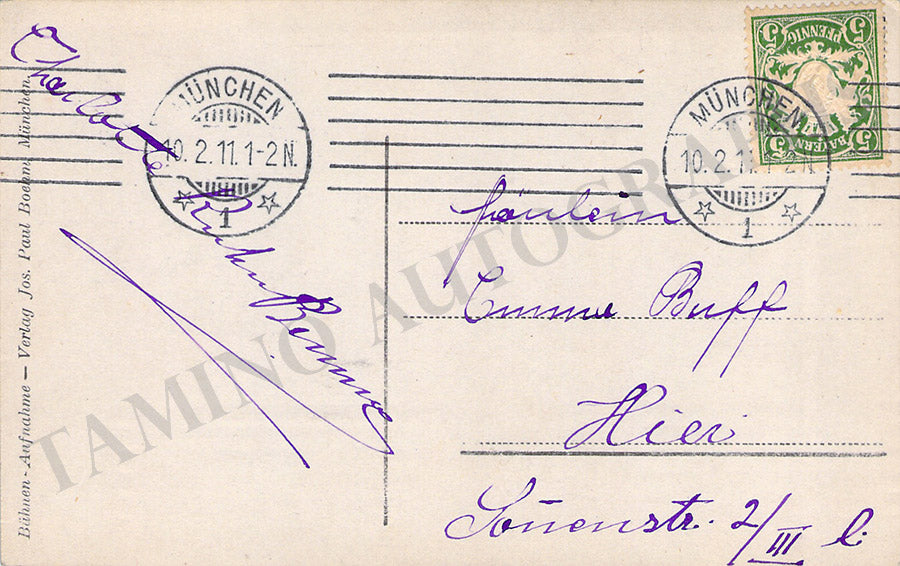 Charlotte Kuhn Brunner
Bühnen-Aufnahme — Verlag Jos. Paul Boehm, München.
MÜNCHEN
10.2.11.1-2N.
1
MÜNCHEN
10.2.11.1-2N
1
5 PFENNIG 5
BAYERN
5 5
Fräulein
Emma Buff
Hier
Sonnenstr. 2/III l.
TAMINO AUTOGRAPHS